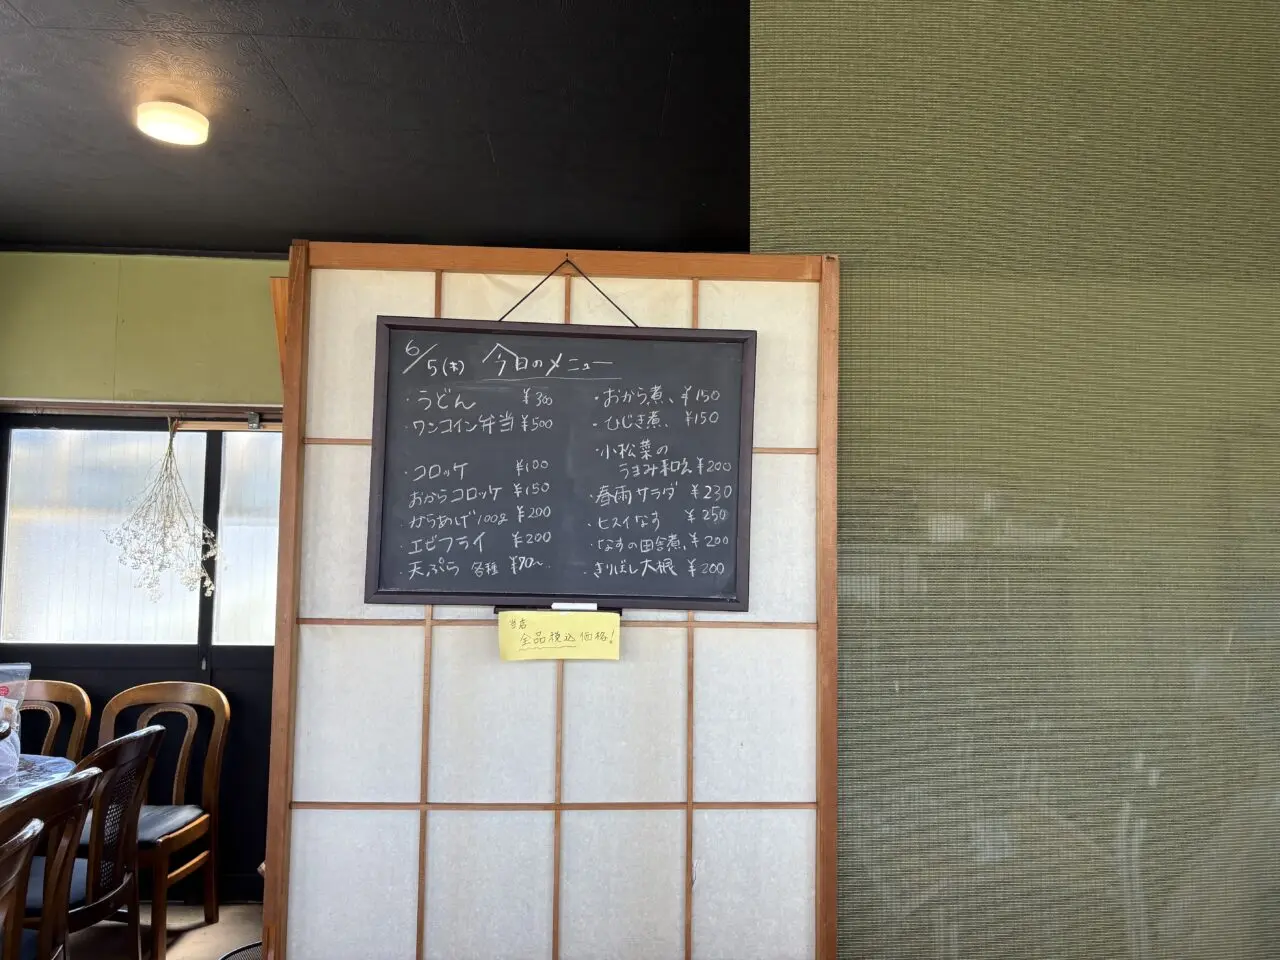 6/5(木) 今日のメニュー
・うどん ¥300
・ワンコイン弁当 ¥500
・コロッケ ¥100
おからコロッケ ¥150
・からあげ100g ¥200
・エビフライ ¥200
・天ぷら 各種 ¥70〜
・おから煮、¥150
・ひじき煮、¥150
・小松菜の
うまみ和え ¥200
・春雨サラダ ¥230
・ヒスイなす ¥250
・なすの田舎煮、¥200
・きりぼし大根 ¥200
当店
全品税込価格!